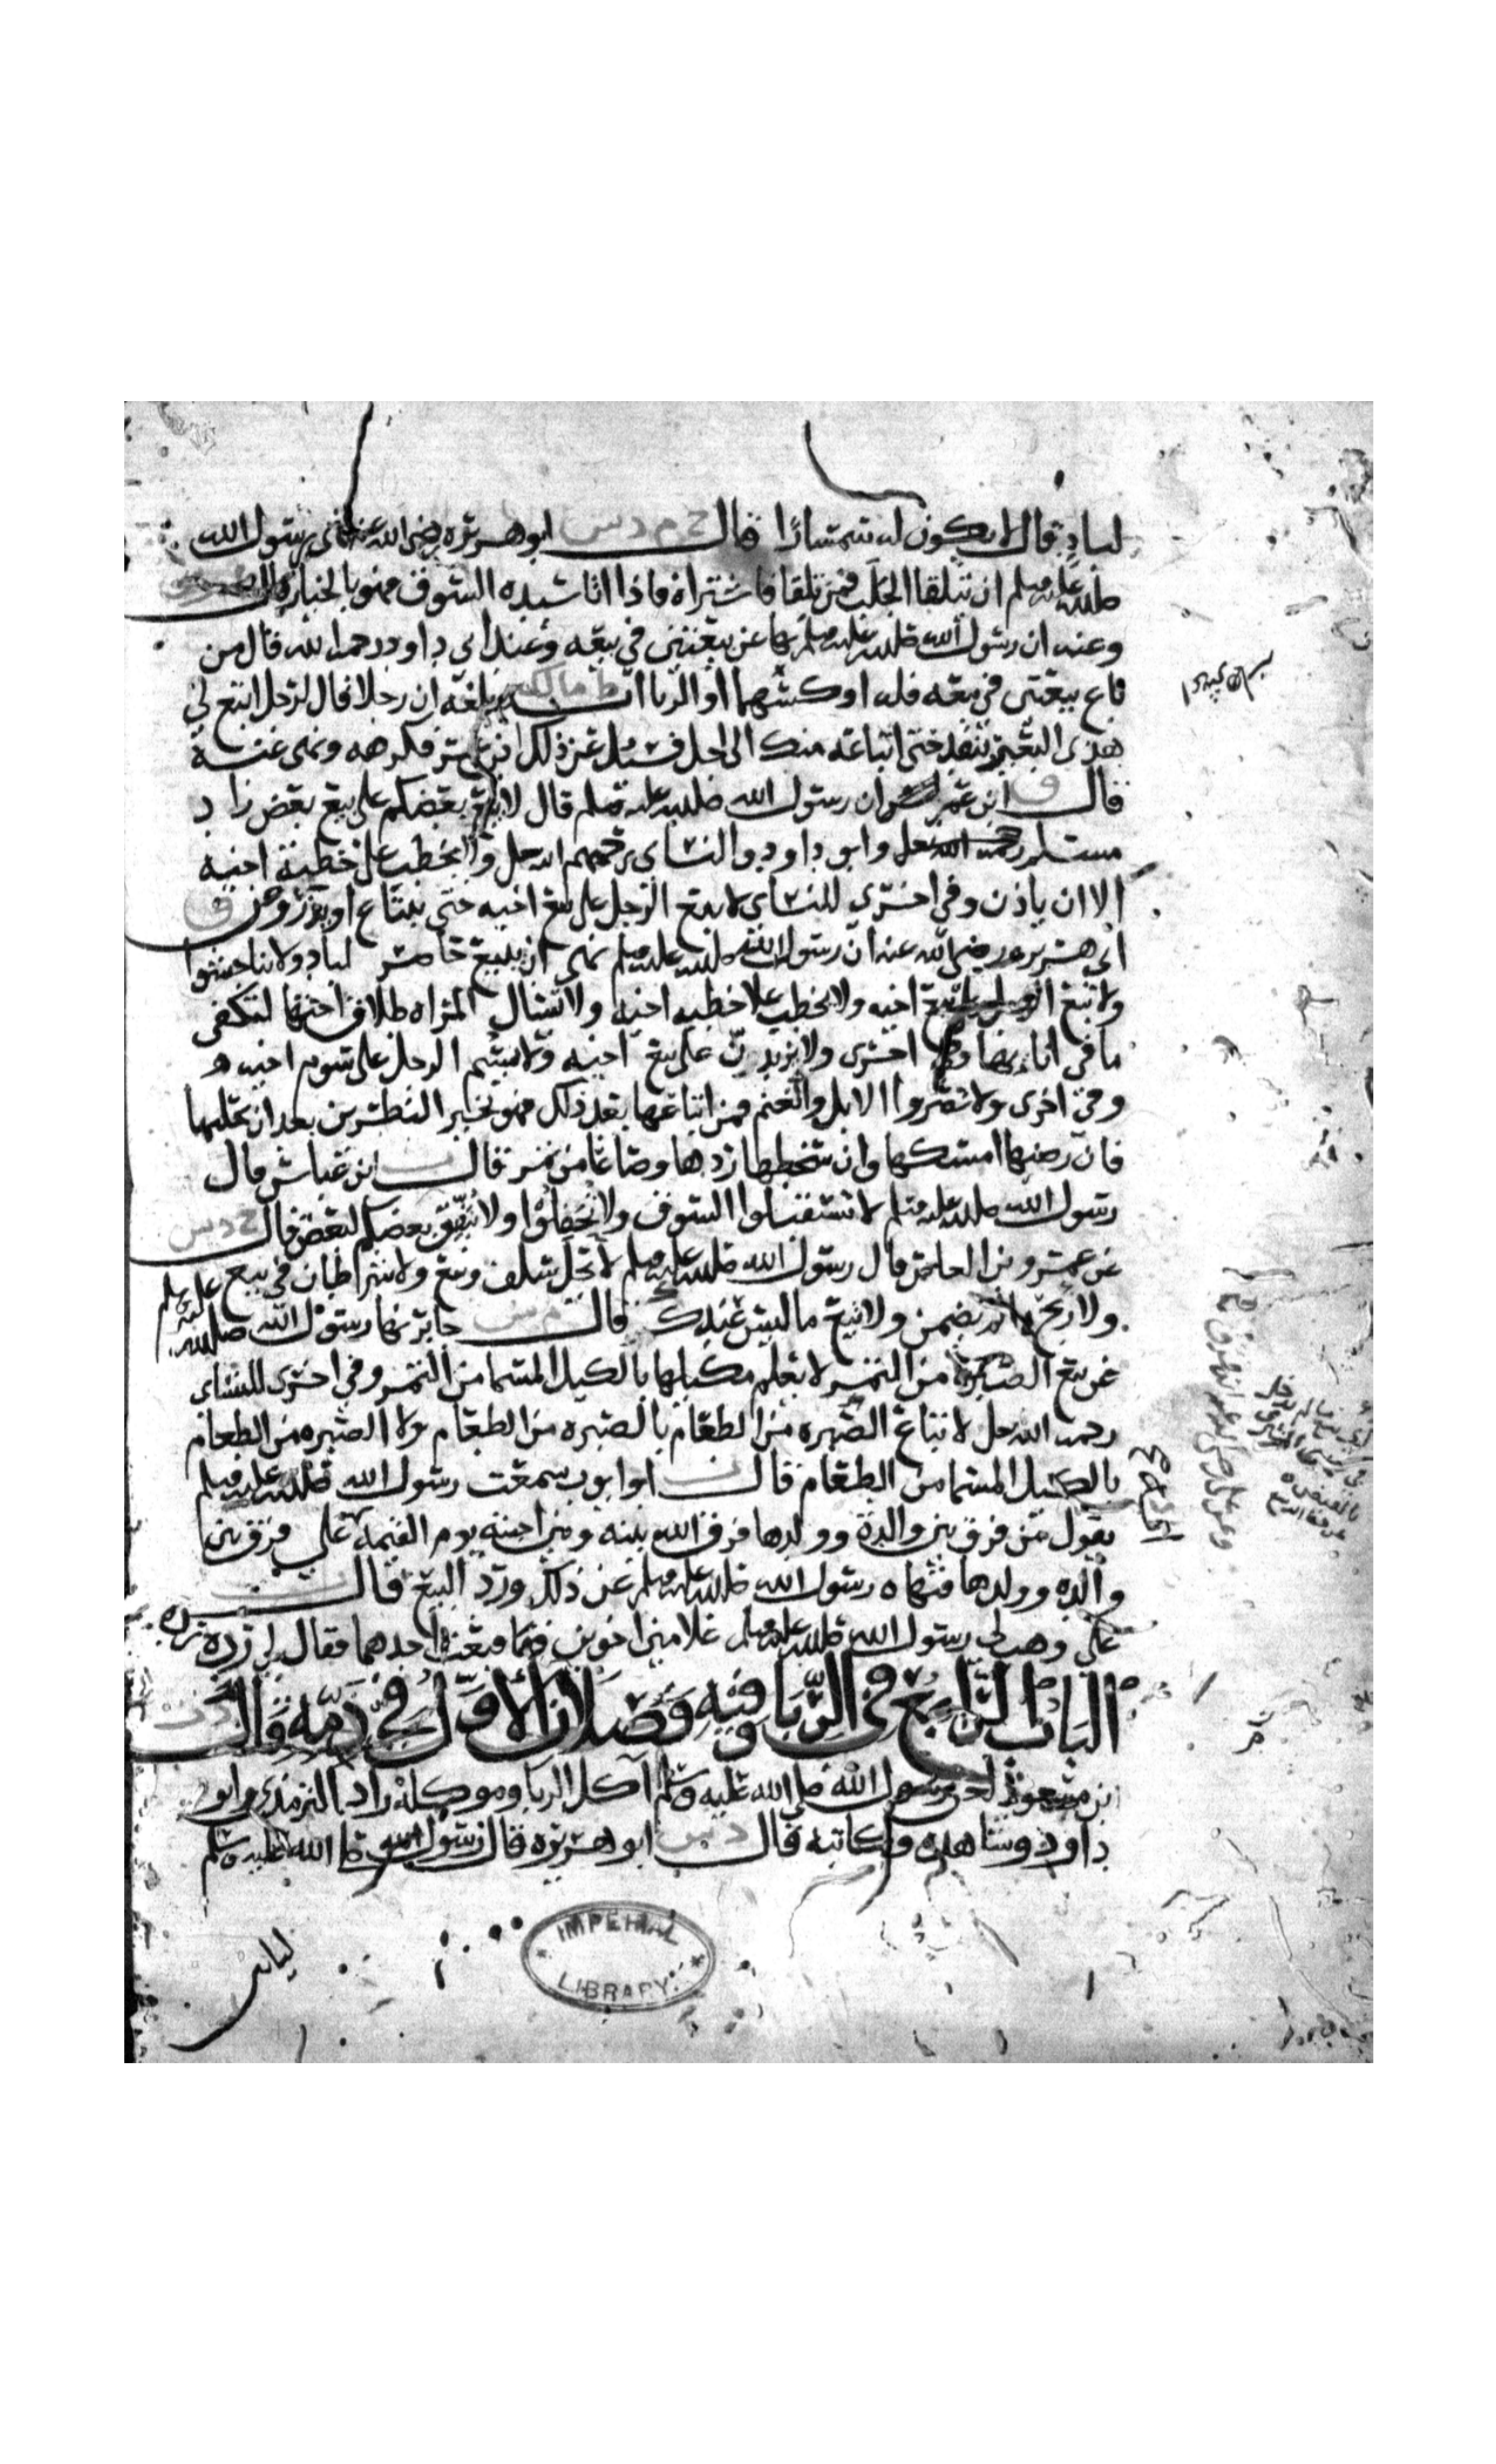 لباد قال لا يكون له سمسارًا قال خ م د س ابو هريره رضي الله عنه نهى رسول الله
صلى الله عليه وسلم ان تتلقا الجلب فمن تلقا فاشتراه فاذا اتا سيده السوق فهو بالخيار
وعنه ان رسول الله صلى الله عليه وسلم نها عن بيعتين في بيعه وعند ابي داود رحمه الله قال من
باع بيعتين في بيعه فله اوكسهما او الربا ط مالك بلغه ان رجلا قال لرجل ابتع لي
هذا البعير بنقد حتى ابتاعه منك الى اجل فسئل عن ذلك ابن عمر فكرهه ونهى عنه
قال ق ابن عمر ان رسول الله صلى الله عليه وسلم قال لا يبع بعضكم على بيع بعض زاد
مسلم رحمه الله وابو داود والنساي رحمهم الله ولا يخطب على خطبة اخيه
الا ان ياذن وفي اخرى للنساي لا يبع الرجل على بيع اخيه حتى يبتاع او يذر وعن ق
ابي هريره رضي الله عنه ان رسول الله صلى الله عليه وسلم نهى ان يبيع حاضر لباد ولا تناجشوا
ولا يبع الرجل على بيع اخيه ولا يخطب على خطبه اخيه ولا تسئال المراه طلاق اختها لتكفى
ما في انايها وفي اخرى ولا يزيدن على بيع اخيه ولا يسم الرجل على سوم اخيه
وفي اخرى ولا تصروا الابل والغنم فمن ابتاعها بعد ذلك فهو بخير النظرين بعد ان يحلبها
فان رضيها امسكها وان سخطها ردها وصاعا من تمر قال ت ابن عباس قال
رسول الله صلى الله عليه وسلم لا تستقبلوا السوق ولا تحفلوا ولا ينفق بعضكم لبعض قال د س
عن عمرو بن العاص قال رسول الله صلى الله عليه وسلم لا يحل سلف وبيع ولا شرطان في بيع
ولا ربح ما لم يضمن ولا بيع ما ليس عندك قال م س جابر نها رسول الله صلى الله عليه وسلم
عن بيع الصبرة من التمر لا يعلم مكيلها بالكيل المسما من التمر وفي اخرى للنساي
رحمه الله لا تباع الصبره من الطعام بالصبره من الطعام ولا الصبره من الطعام
بالكيل المسما من الطعام قال ت ابو ايوب سمعت رسول الله صلى الله عليه وسلم
يقول من فرق بين والدة وولدها فرق الله بينه وبين احبته يوم القيمه علي فرق بين
والده وولدها فنهاه رسول الله صلى الله عليه وسلم عن ذلك ورد البيع قال ت
علي وهب لي رسول الله صلى الله عليه وسلم غلامين اخوين فبعت احدهما فقال لي رده رده
الباب الرابع في الربا وفيه فصلان الأول في ذمه قال
ابن مسعود لعن رسول الله صلى الله عليه وسلم آكل الربا وموكله زاد الترمذي وابو
داود وشاهده وكاتبه قال د س ابو هريره قال رسول الله صلى الله عليه وسلم
IMPERIAL
LIBRARY